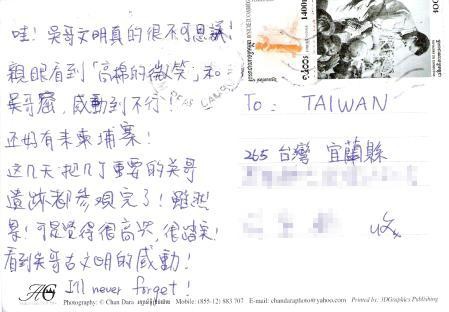 哇!吳哥文明真的很不可思議!
親眼看到「高棉的微笑」和
吳哥窟,感動到不行!
还好有来柬埔寨!
這几天把几个重要的吳哥
遺跡都参观完了!雖然
累!可是覺得很高兴,很踏实!
看到吳哥古文明的感動!
I'll never forget!
To: TAIWAN
265 台灣 宜蘭縣
收
1400
Photography: © Chan Dara Mobile: (855-12) 883 707 E-mail: chandaraphoto@yahoo.com Printed by: 3DGraphics Publishing